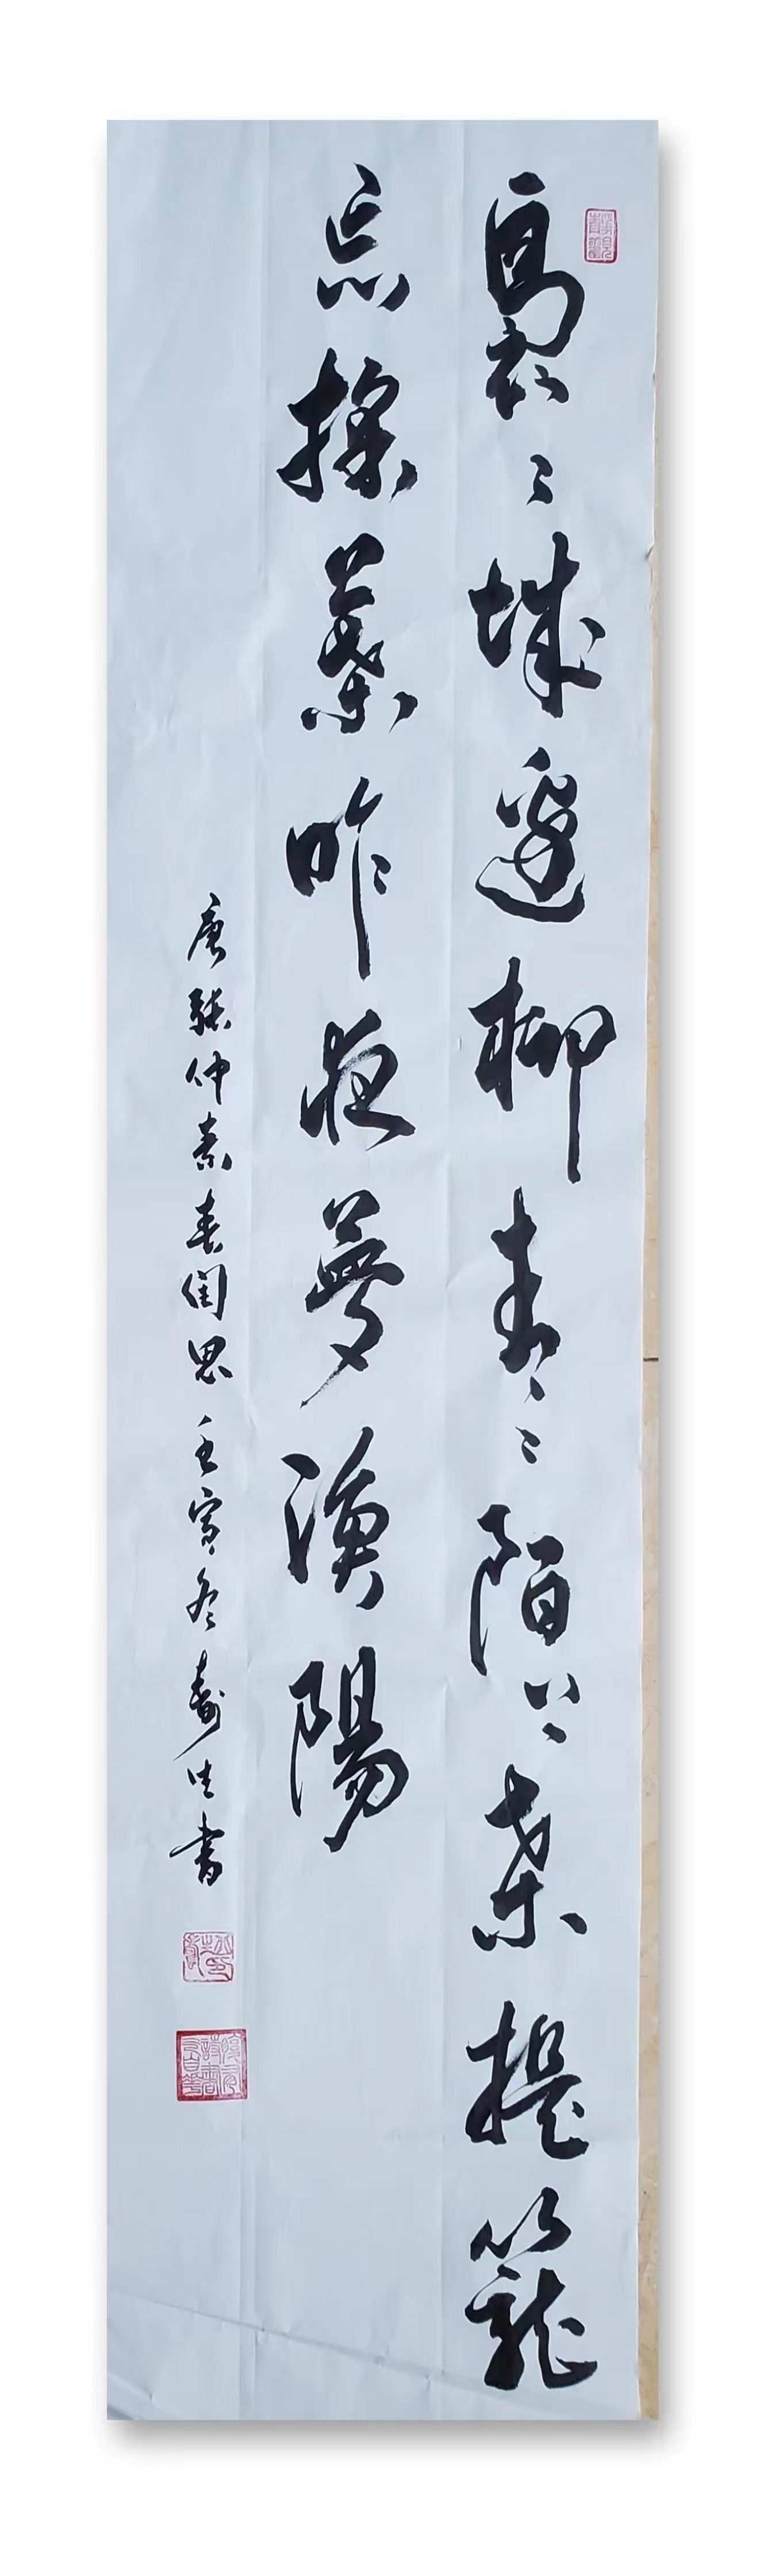 裊〻城邊柳青〻陌上桑提籠
忘採葉昨夜夢漁陽
唐張仲素春閨思壬寅冬壽生書